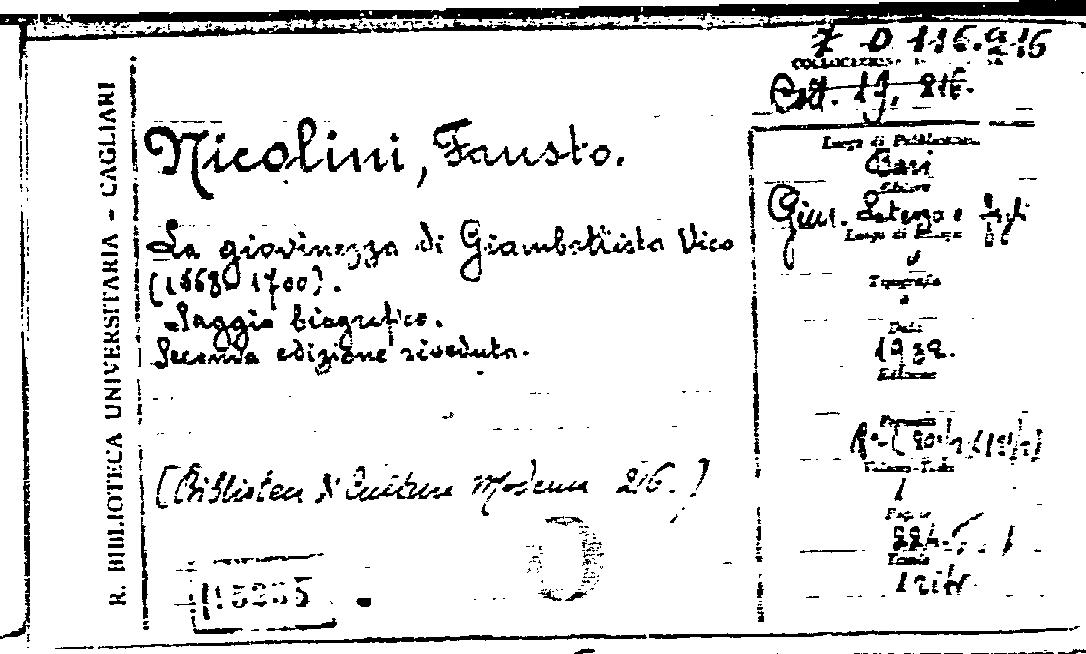 Z D 116.216
COLLOCAZIONE
Coll. 19, 216.
R. BIBLIOTECA UNIVERSITARIA - CAGLIARI
Nicolini, Fausto.
La giovinezza di Giambattista Vico
(1668-1700).
Saggio biografico.
Seconda edizione riveduta.
(Biblioteca di Cultura Moderna 216.)
Luogo di Pubblicaz.
Bari
Editore
Gius. Laterza e figli
Luogo di Stampa
Tipografia
Data
1932.
Edizione
Formato
Volume-Tomo
1
Pagine
Tavole
1 ritr.